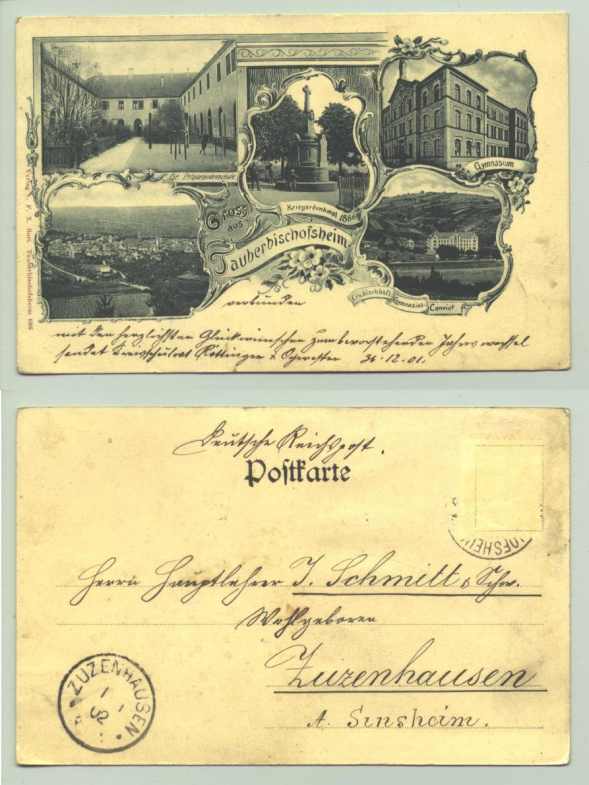 Gr. Präparandenschule
Kriegerdenkmal 1866
Gymnasium
Gruss
aus
Tauberbischofsheim
Erzbischöfl. Gymnasial-Convict
Tauberbischofsheim
verbunden
mit den herzlichsten Glückwünschen zum bevorstehenden Jahreswechsel
sendet Kreisschulrat Röttinger u. Schwester 31.12.01.
Deutsche Reichspost.
Postkarte
OFSHEI
Herrn Hauptlehrer J. Schmitt u. Schw.
Wohlgeboren
Zuzenhausen
A. Sinsheim.
ZUZENHAUSEN
1 1
02